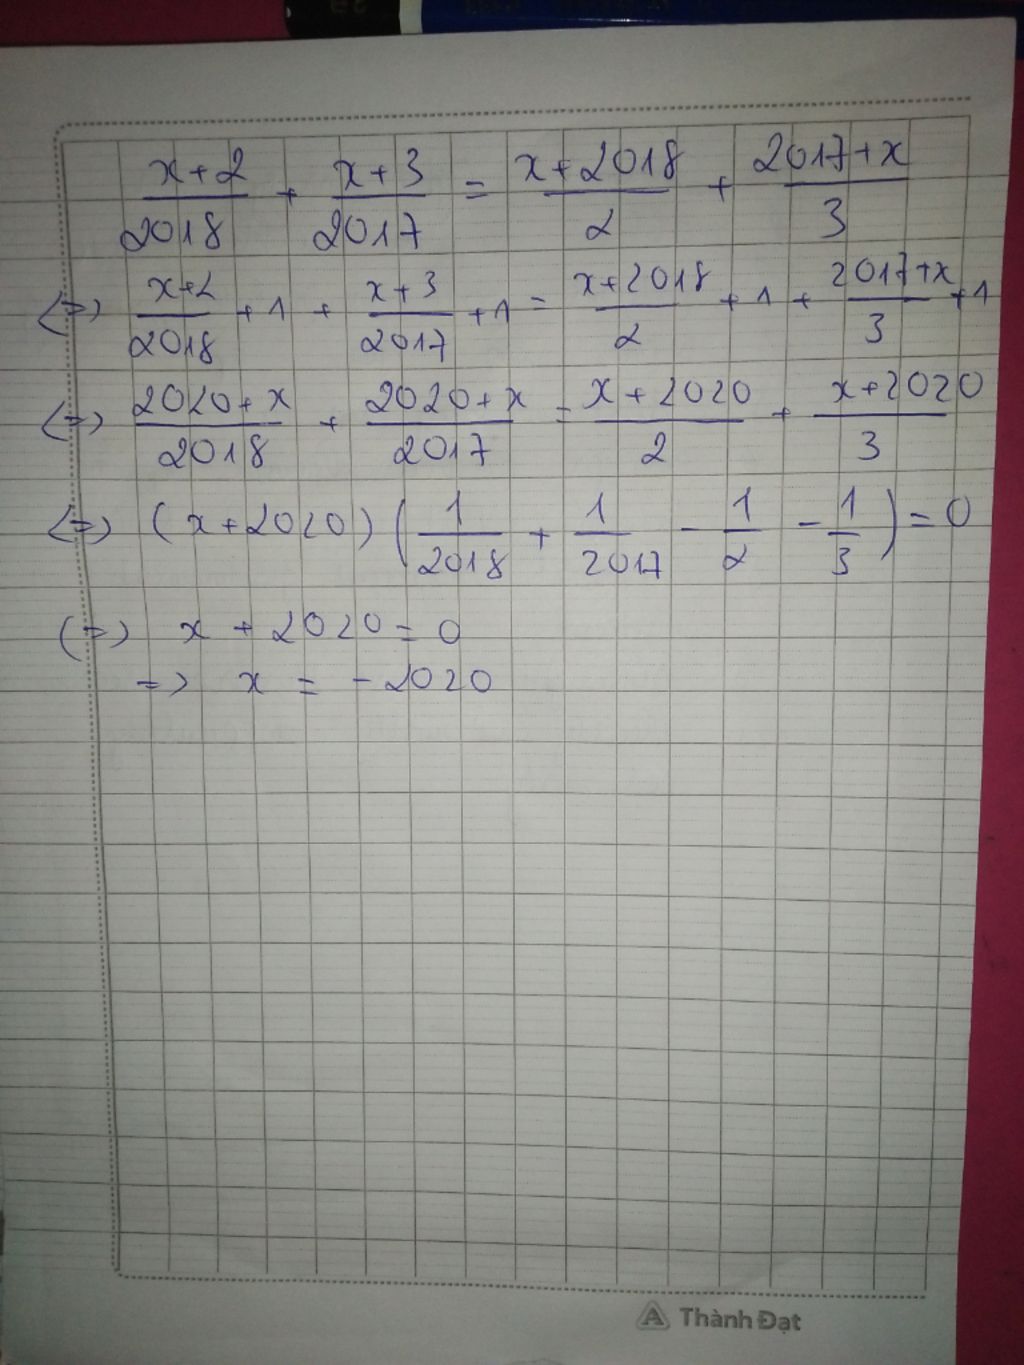 x+2/2018 + x+3/2017 = x+2018/2 + 2017+x/3
(=) x+2/2018 +1 + x+3/2017 +1 = x+2018/2 +1 + 2017+x/3 +1
(=) 2020+x/2018 + 2020+x/2017 = x+2020/2 + x+2020/3
(=) (x+2020)(1/2018 + 1/2017 - 1/2 - 1/3) = 0
(=) x + 2020 = 0
=> x = -2020
Thành Đạt